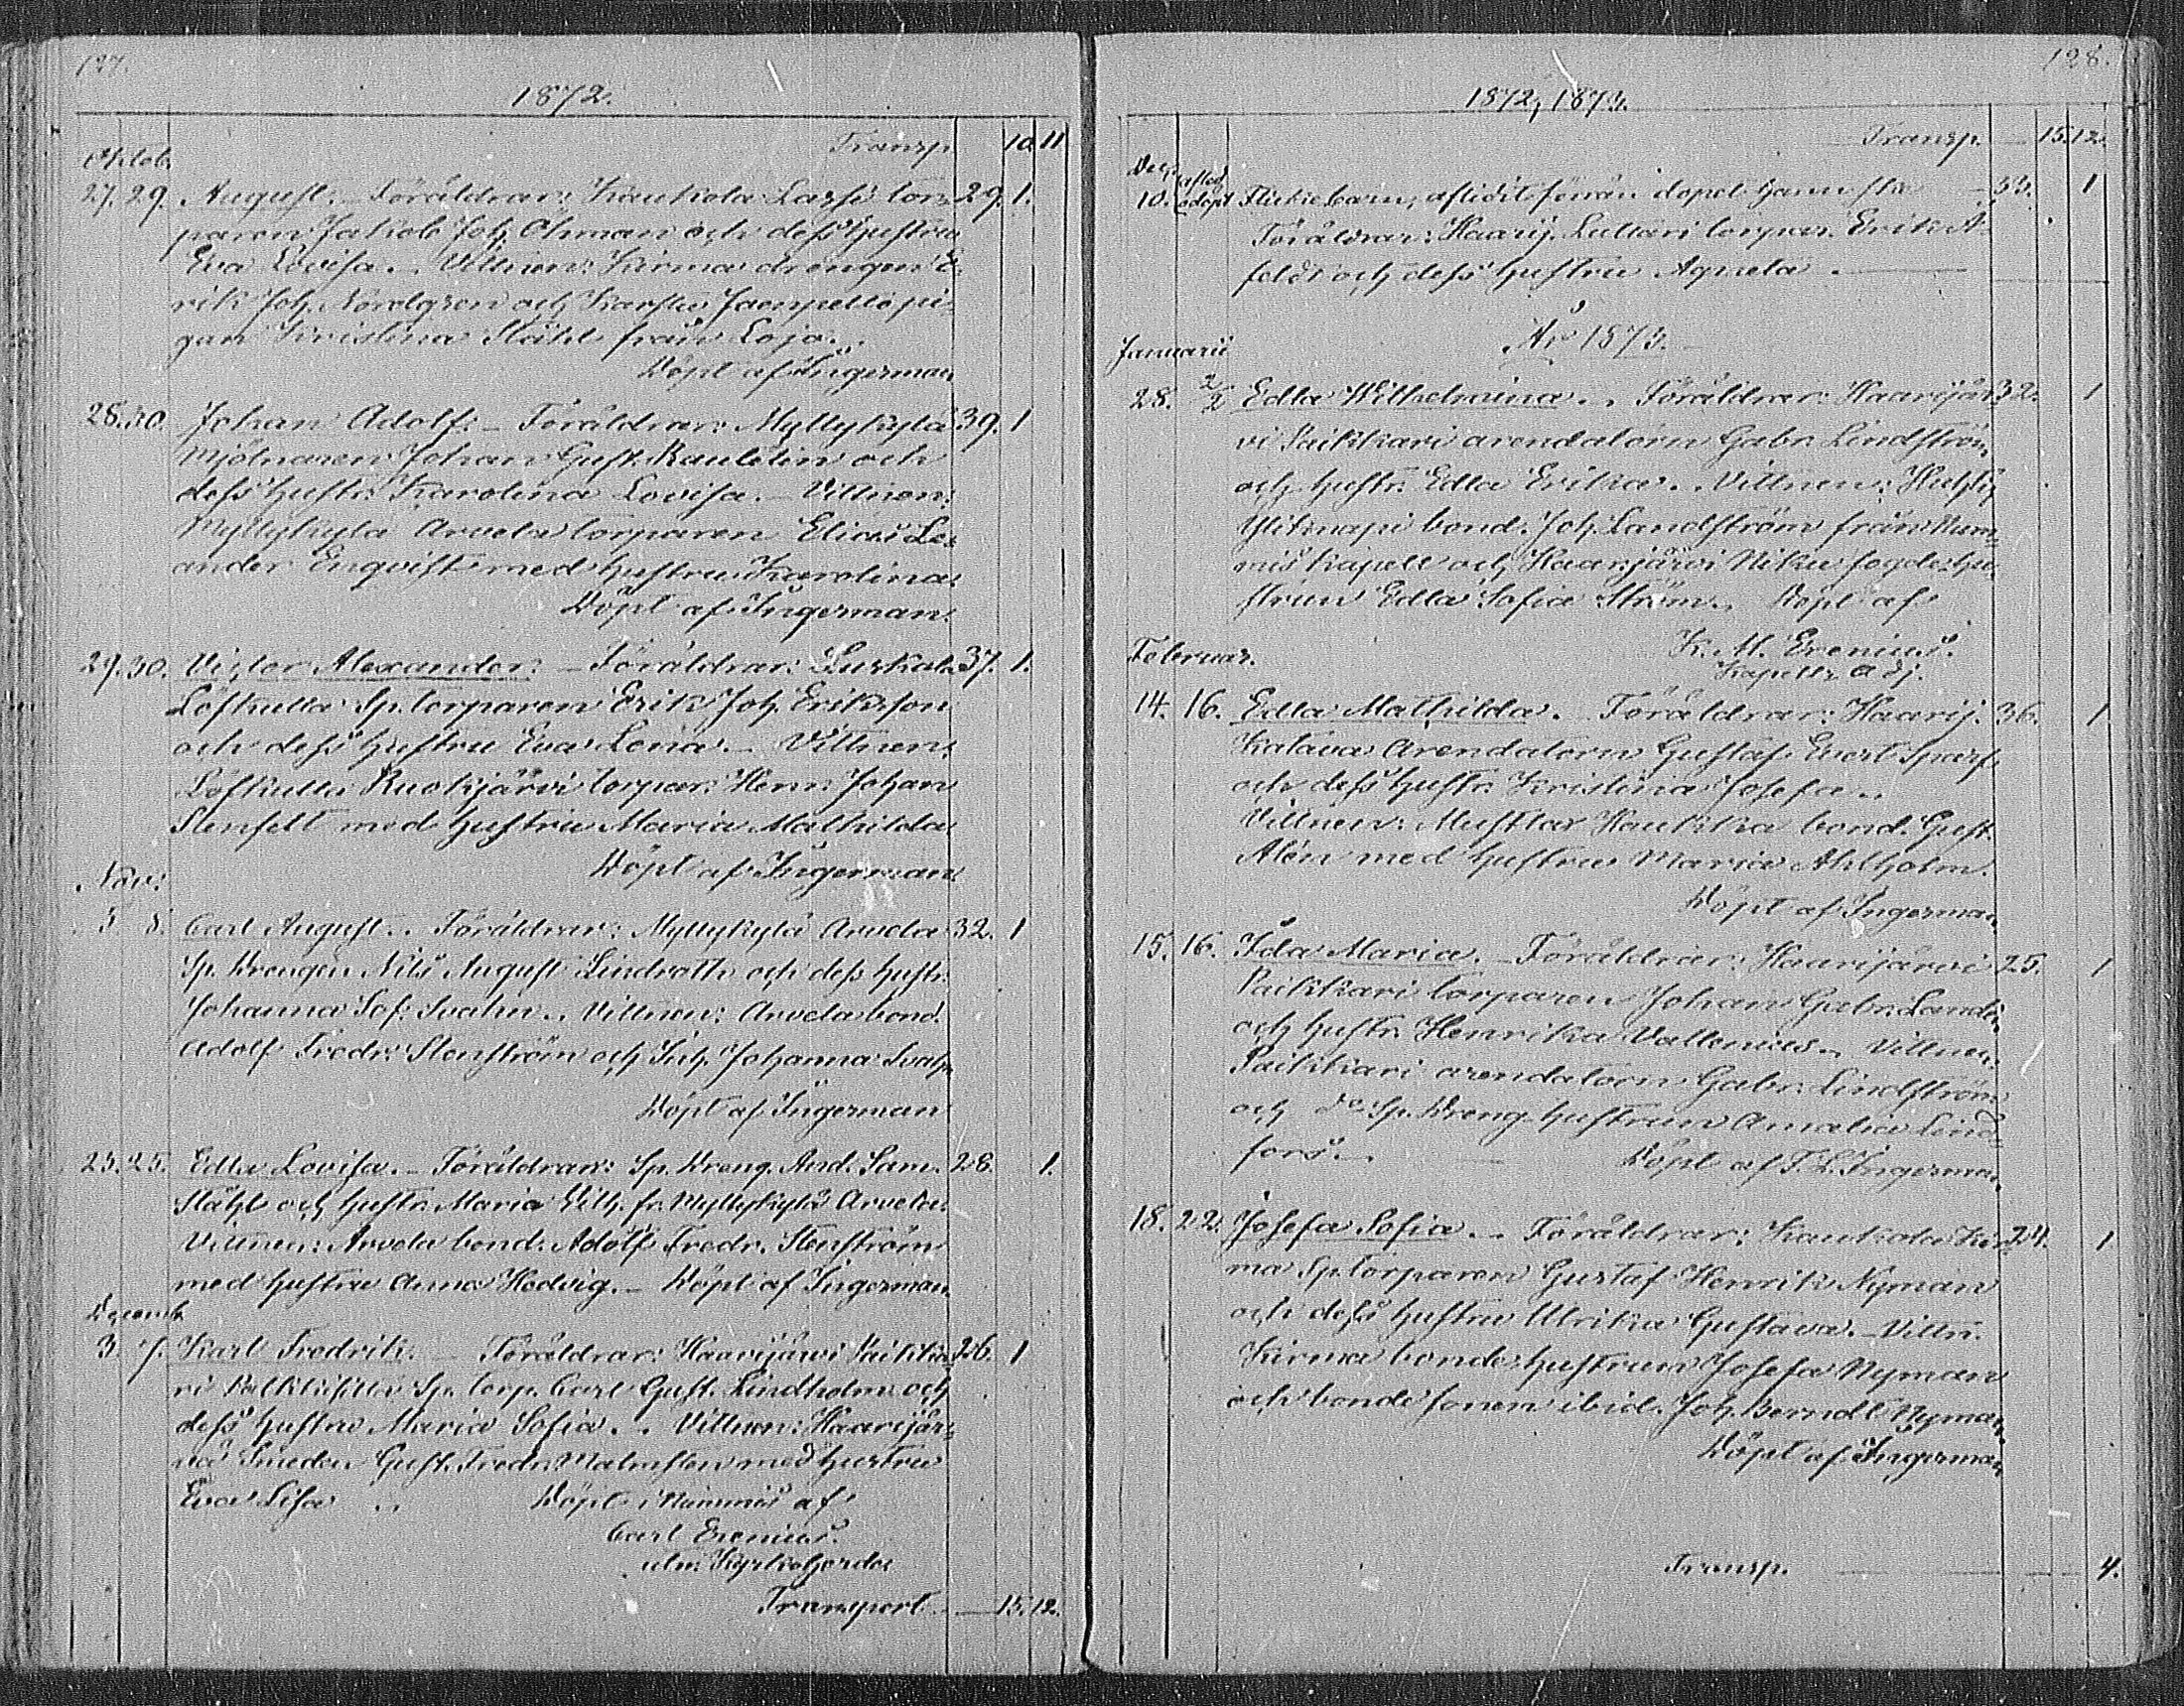 127.
1872.
Transp. 10 11
Oktob.
27. 29. August. Föräldrar: Kaukola Lassi tor- 29. 1.
paren Jakob Joh. Öhman och dess hustru
Eva Lovisa. Vittnen: Kirma drengen E-
rik Joh. Nordgren och Karstu pi-
gan Kristina Ståhl från Lojo.
Döpt af Ingerman
28. 30. Johan Adolf: Föräldrar: Myllykylä 39. 1
Mjölnaren Johan Gust. Raulelin och
dess hustr. Karolina Lovisa. Vittnen:
Myllykylä Arvela torparen Elias Le-
ander Enqvist med hustru Karolina
Döpt af Ingerman.
29. 30. Victor Alexander: Föräldrar: 37. 1.
Löfkulla Sp. torparen Erik Joh. Eriksson
och dess hustru Eva Lena. Vittnen:
Löfkulla Ruokjärvi torpar. Henr. Johan
Stenfelt med hustru Maria Mathilda
Döpt af Ingerman
Nov:
5 8. Carl August. Föräldrar: Myllykylä Arvela 32. 1
Sp. Drengen Nils August Lindroth och dess hustr.
Johanna Sof: Svahn. Vittnen: Arvela bond.
Adolf Fredr: Stenström och Johanna Svahn
Döpt af Ingerman
25. 25. Edla Lovisa. Föräldrar: Sp. Dreng. And. Sam. 28. 1.
Ståhl och hustr. Maria Vilh. fr. Myllykylä Arvela.
Vittnen: Arvela bond. Adolf Fredr. Stenström
med hustru Anna Hedvig. Döpt af Ingerman
Decemb.
3. 7. Karl Fredrik. Föräldrar: Haarijärvi Paikka- 26. 1
ri Sp. torp. Carl Gust. Lindholm och
dess hustru Maria Sofia. Vittnen: Haarijär-
vi Smeden Gust. Fredr. Malmsten med hustru
Eva Lisa Döpt i Nummis af
Carl Erenius.
Transport 15. 12.
128.
1872, 1873.
Transp. 15. 12.
Dec.
10. odöpt Flickebarn, aflidit förrän dopet hann ske 33. 1
Föräldrar: Haarij. Lullari torpar. Erik A-
feldt och dess hustru Agneta.
År 1873.
Januarii
28. 2/2 Edla Wilhelmina. Föräldrar: Haarijär- 32. 1
vi Paikkari arendatorn Gabr. Lindström
och hustr. Edla Erika. Vittnen: Huhti
bond. Joh. Landström från Num-
mis Kapell och Haarijärvi Niku fogde hu-
strun Edla Sofia Ström. Döpt af
K. M. Erenius.
Kapells Adj.
Februar.
14. 16. Edla Mathilda. Föräldrar: Haarij. 36. 1
Katava Arendatorn Gustaf Evert Sparf
och dess hustr. Kristina Josefa.
Vittnen: Mustlax Haukka bond. Gust.
Alén med hustru Maria Ahlholm.
Döpt af Ingerman
15. 16. Ida Maria. Föräldrar: Haarijärvi 25. 1
Paikkari torparen Johan Gabr. Landén
och hustr. Henrika Vallenius. Vittnen:
Paikkari arendatorn Gabr. Lindström
och do Sp. Dreng hustrun Amalia Lind-
fors. Döpt af F. L. Ingerman
18. 22. Josefa Sofia. Föräldrar: Kaukola Kir- 24. 1
ma Sp. torparen Gustaf Henrik Nyman
och dess hustru Ulrika Gustava. Vittn.
Kirma bonde hustrun Josefa Nyman
och bondesonen ibid. Joh. Berndt Nyman
Döpt af Ingerman
Transp. 4.